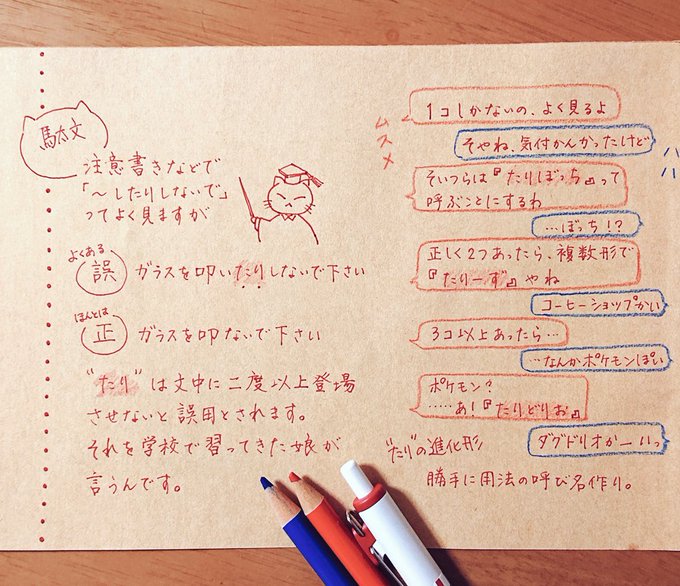 駄文
注意書きなどで
「～したりしないで」
ってよく見ますが
よくある
誤 ガラスを叩いたりしないで下さい
ほんとは
正 ガラスを叩ないで下さい
"たり"は文中に二度以上登場
させないと誤用とされます。
それを学校で習ってきた娘が
言うんです。
ムスメ
1コしかないの、よく見るよ
そやね、気付かんかったけど
ハハ
そいつらは『たりぼっち』って
呼ぶことにするわ
…ぼっち!?
正しく2つあったら、複数形で
『たりーず』やね
コーヒーショップかい
3コ以上あったら…
…なんかポケモンぽい
ポケモン?
……あ!『たりどりお』
ダグドリオかーいっ
"たり"の進化形
勝手に用法の呼び名作り。